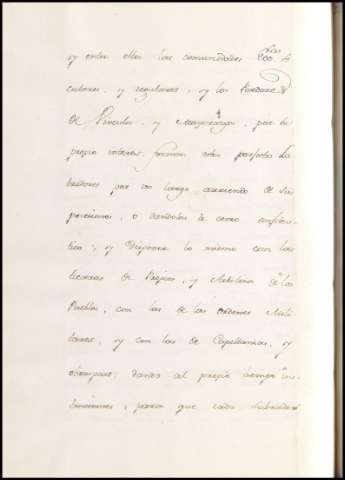 y entre ellos las comunidades
culares, y regulares, y los
de Vinculos, y Mayorazgos, por su
propio interes, formen estos perfectos La-
bradores por un largo arriendo de sus
posesiones, o dandolas à censo emfiteu-
tico; y disponer lo mismo con las
tierras de Propios, y Arbitrios de los
Pueblos, con las de las ordenes Mili-
tares, y con las de Capellanias, y
obraspias: dando al propio tiempo
para que cada Labrador